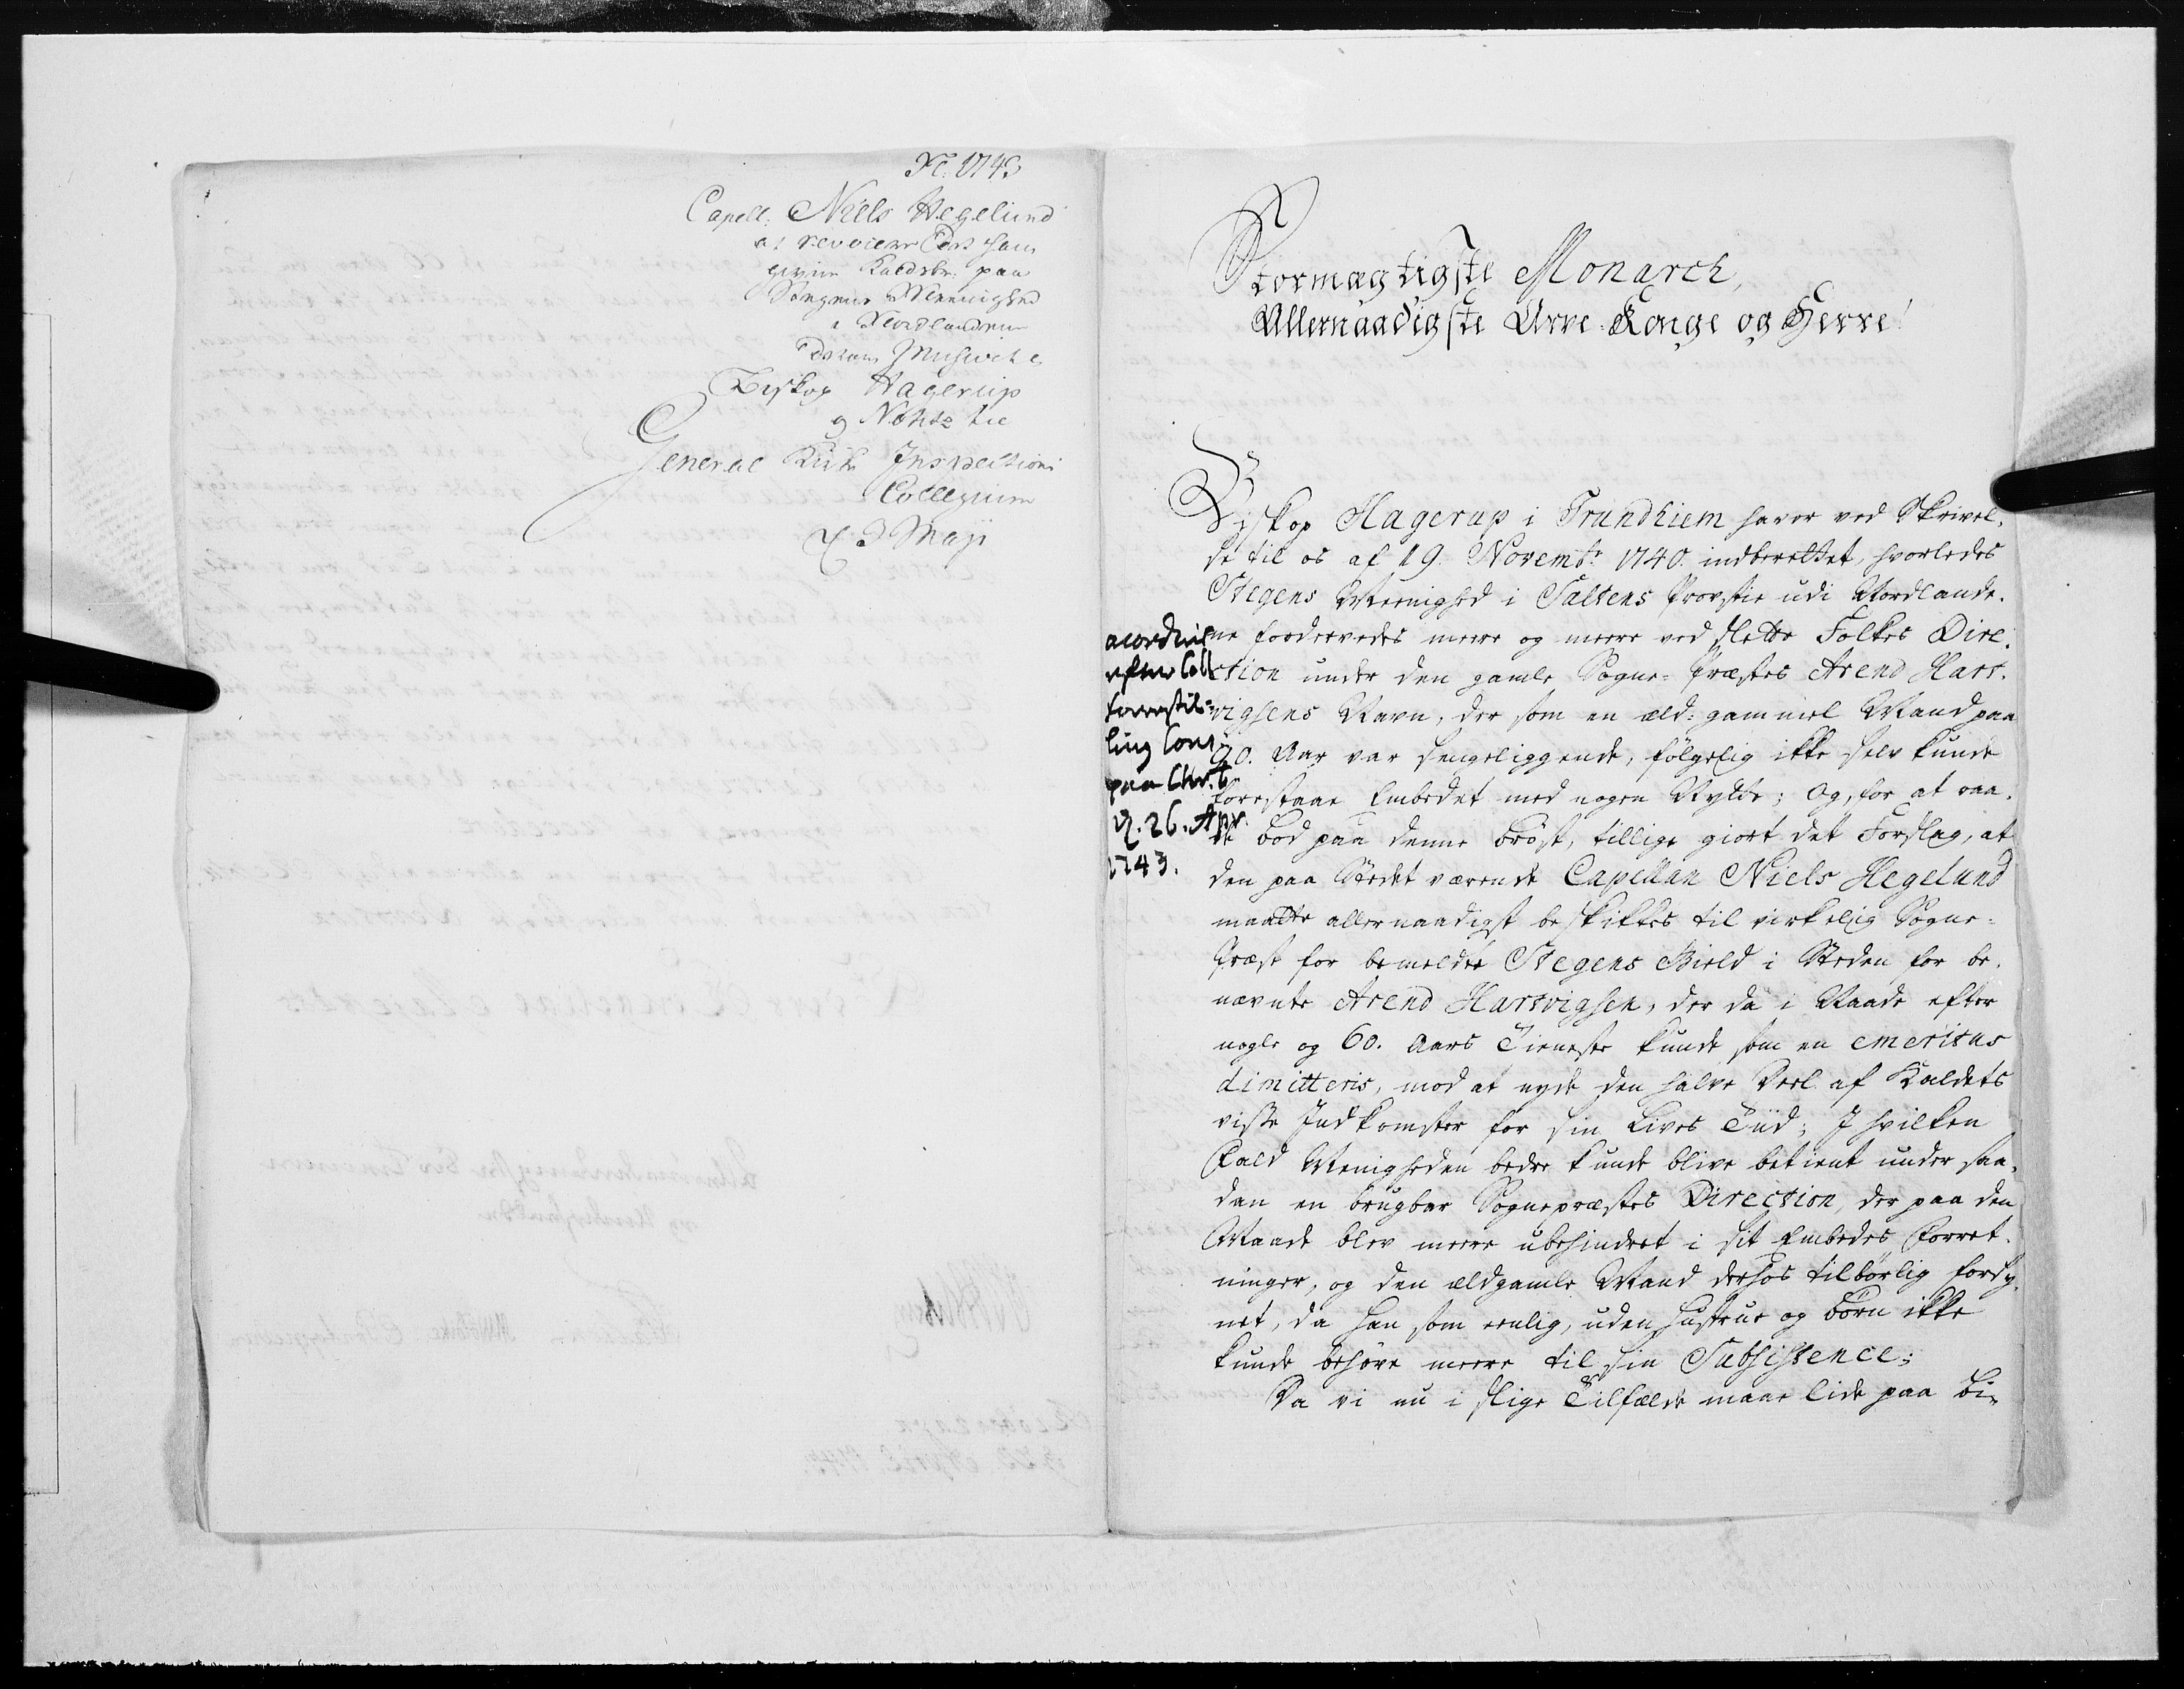 1743
Capell. Niels Hegelund
at revoiere det ham
givne Kaldsbr. paa
Menniighed
i Nordlandene
Biskop Hagerup
og Nohts til
General Kirk Inspections
Collegium
d. 3 Maji
Stormægtigste Monarch,
Allernaadigste Arve-Konge og Herre!
Biskop Hagerup i Trundhiem haver ved Skrivel-
se til os af 19. Novembr. 1740. indberettet, hvorledes
Stegens Meenighed i Saltens Provstie udi Nordlande-
ne fordervedes meere og meere ved slette Folkes Dire-
ction under den gamle Sogne-Præstes Arend Hart-
vigsens Navn, der som en æld-gammel Mand paa
90. Aar var sengeliggende, følgelig ikke selv kunde
forestaae Embedet med nogen Nytte; Og, for at raa-
de bod paa denne brøst, tillige giort det Forslag, at
den paa Stedet værende Capellan Niels Hegelund
maatte allernaadigst beskikkes til virkelig Sogne-
Præst for bemeldte Stegens Gield i Steden for be-
nævnte Arend Hartvigsen, der da i Naade efter
nogle og 60. Aars Tieneste kunde som en emeritus
dimitteris, mod at nyde den halve Deel af Kaldets
visse Indkomster for sin Livs Tiid; I hvilken
Fald Menigheden bedre kunde blive betient under saa-
dan en brugbar Sognepræstes Direction, der paa den
Maade blev meere ubehindret i sit Embedes Forret-
ninger, og den ældgamle Mand derhos tilbørlig forsy-
net, da han som eenlig, uden Hustrue og Børn ikke
kunde behøve meere til sin Subsistence;
Da vi nu i slige Tilfælde maae lide paa Bi-
efter Coll
forestil-
ling
paa Chr.b
d. 26. Apr.
1743.